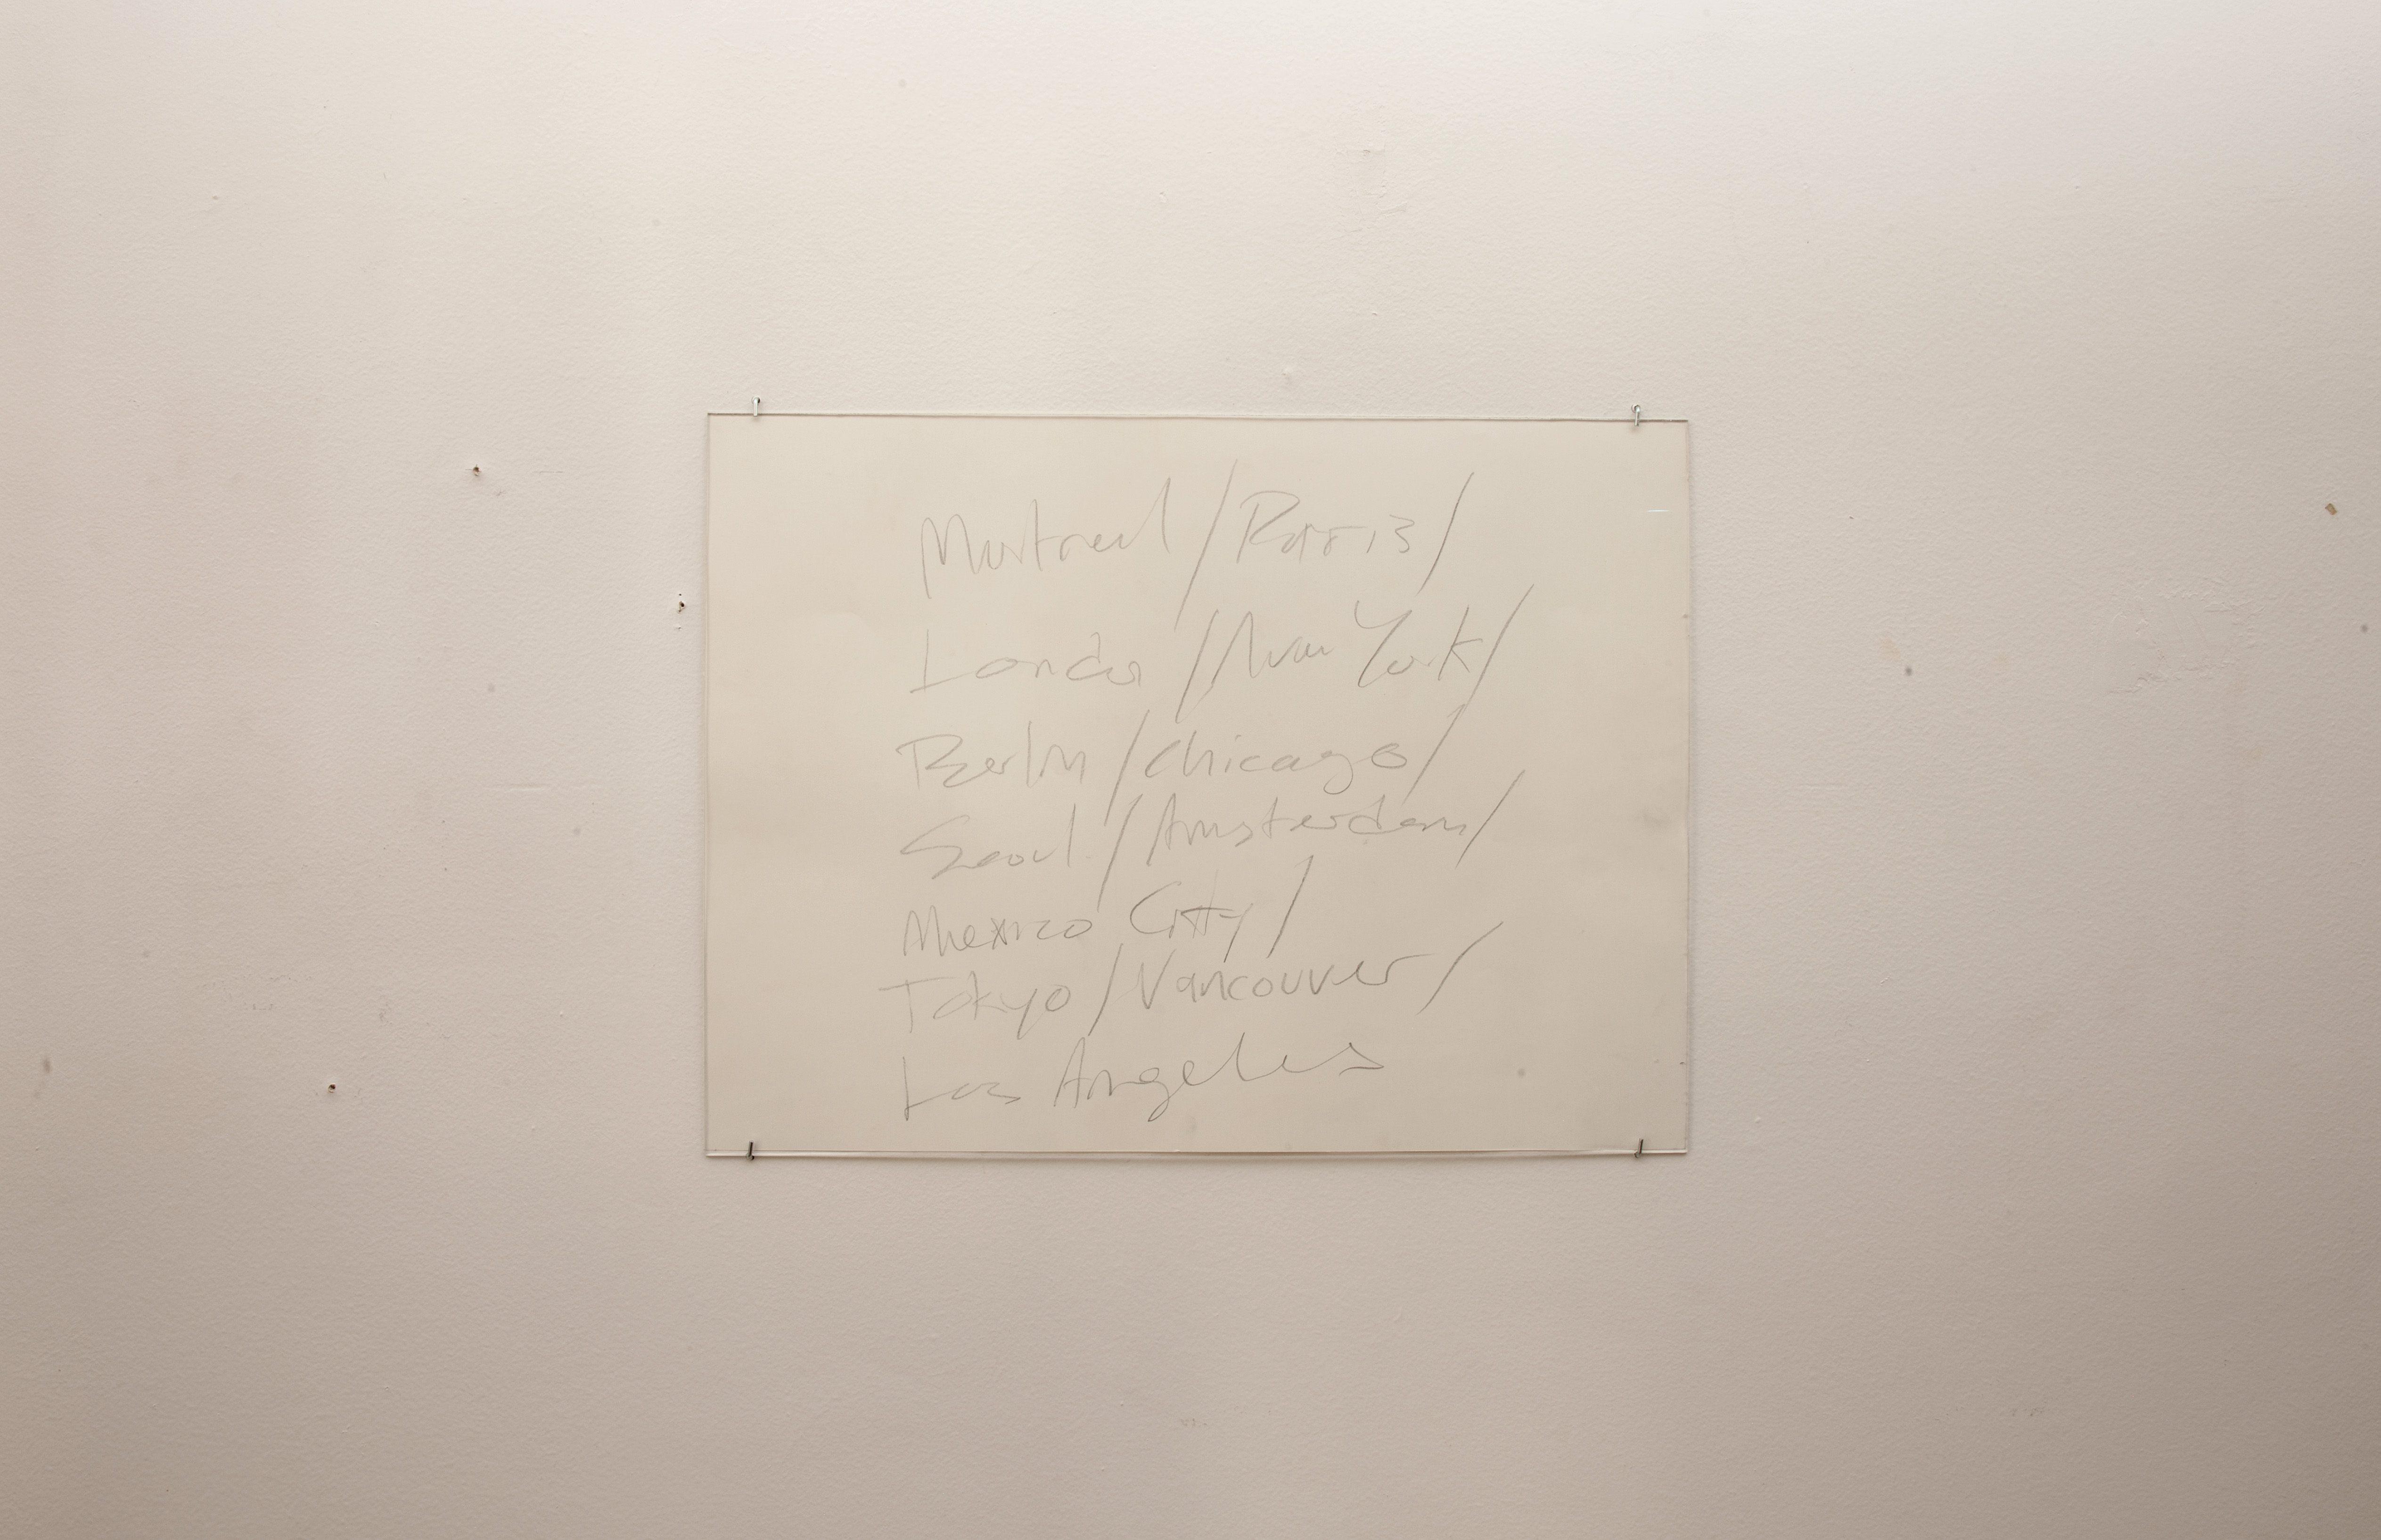 Montreal / Paris /
London / New York /
Berlin / Chicago /
Seoul / Amsterdam /
Mexico City /
Tokyo / Vancouver /
Los Angeles